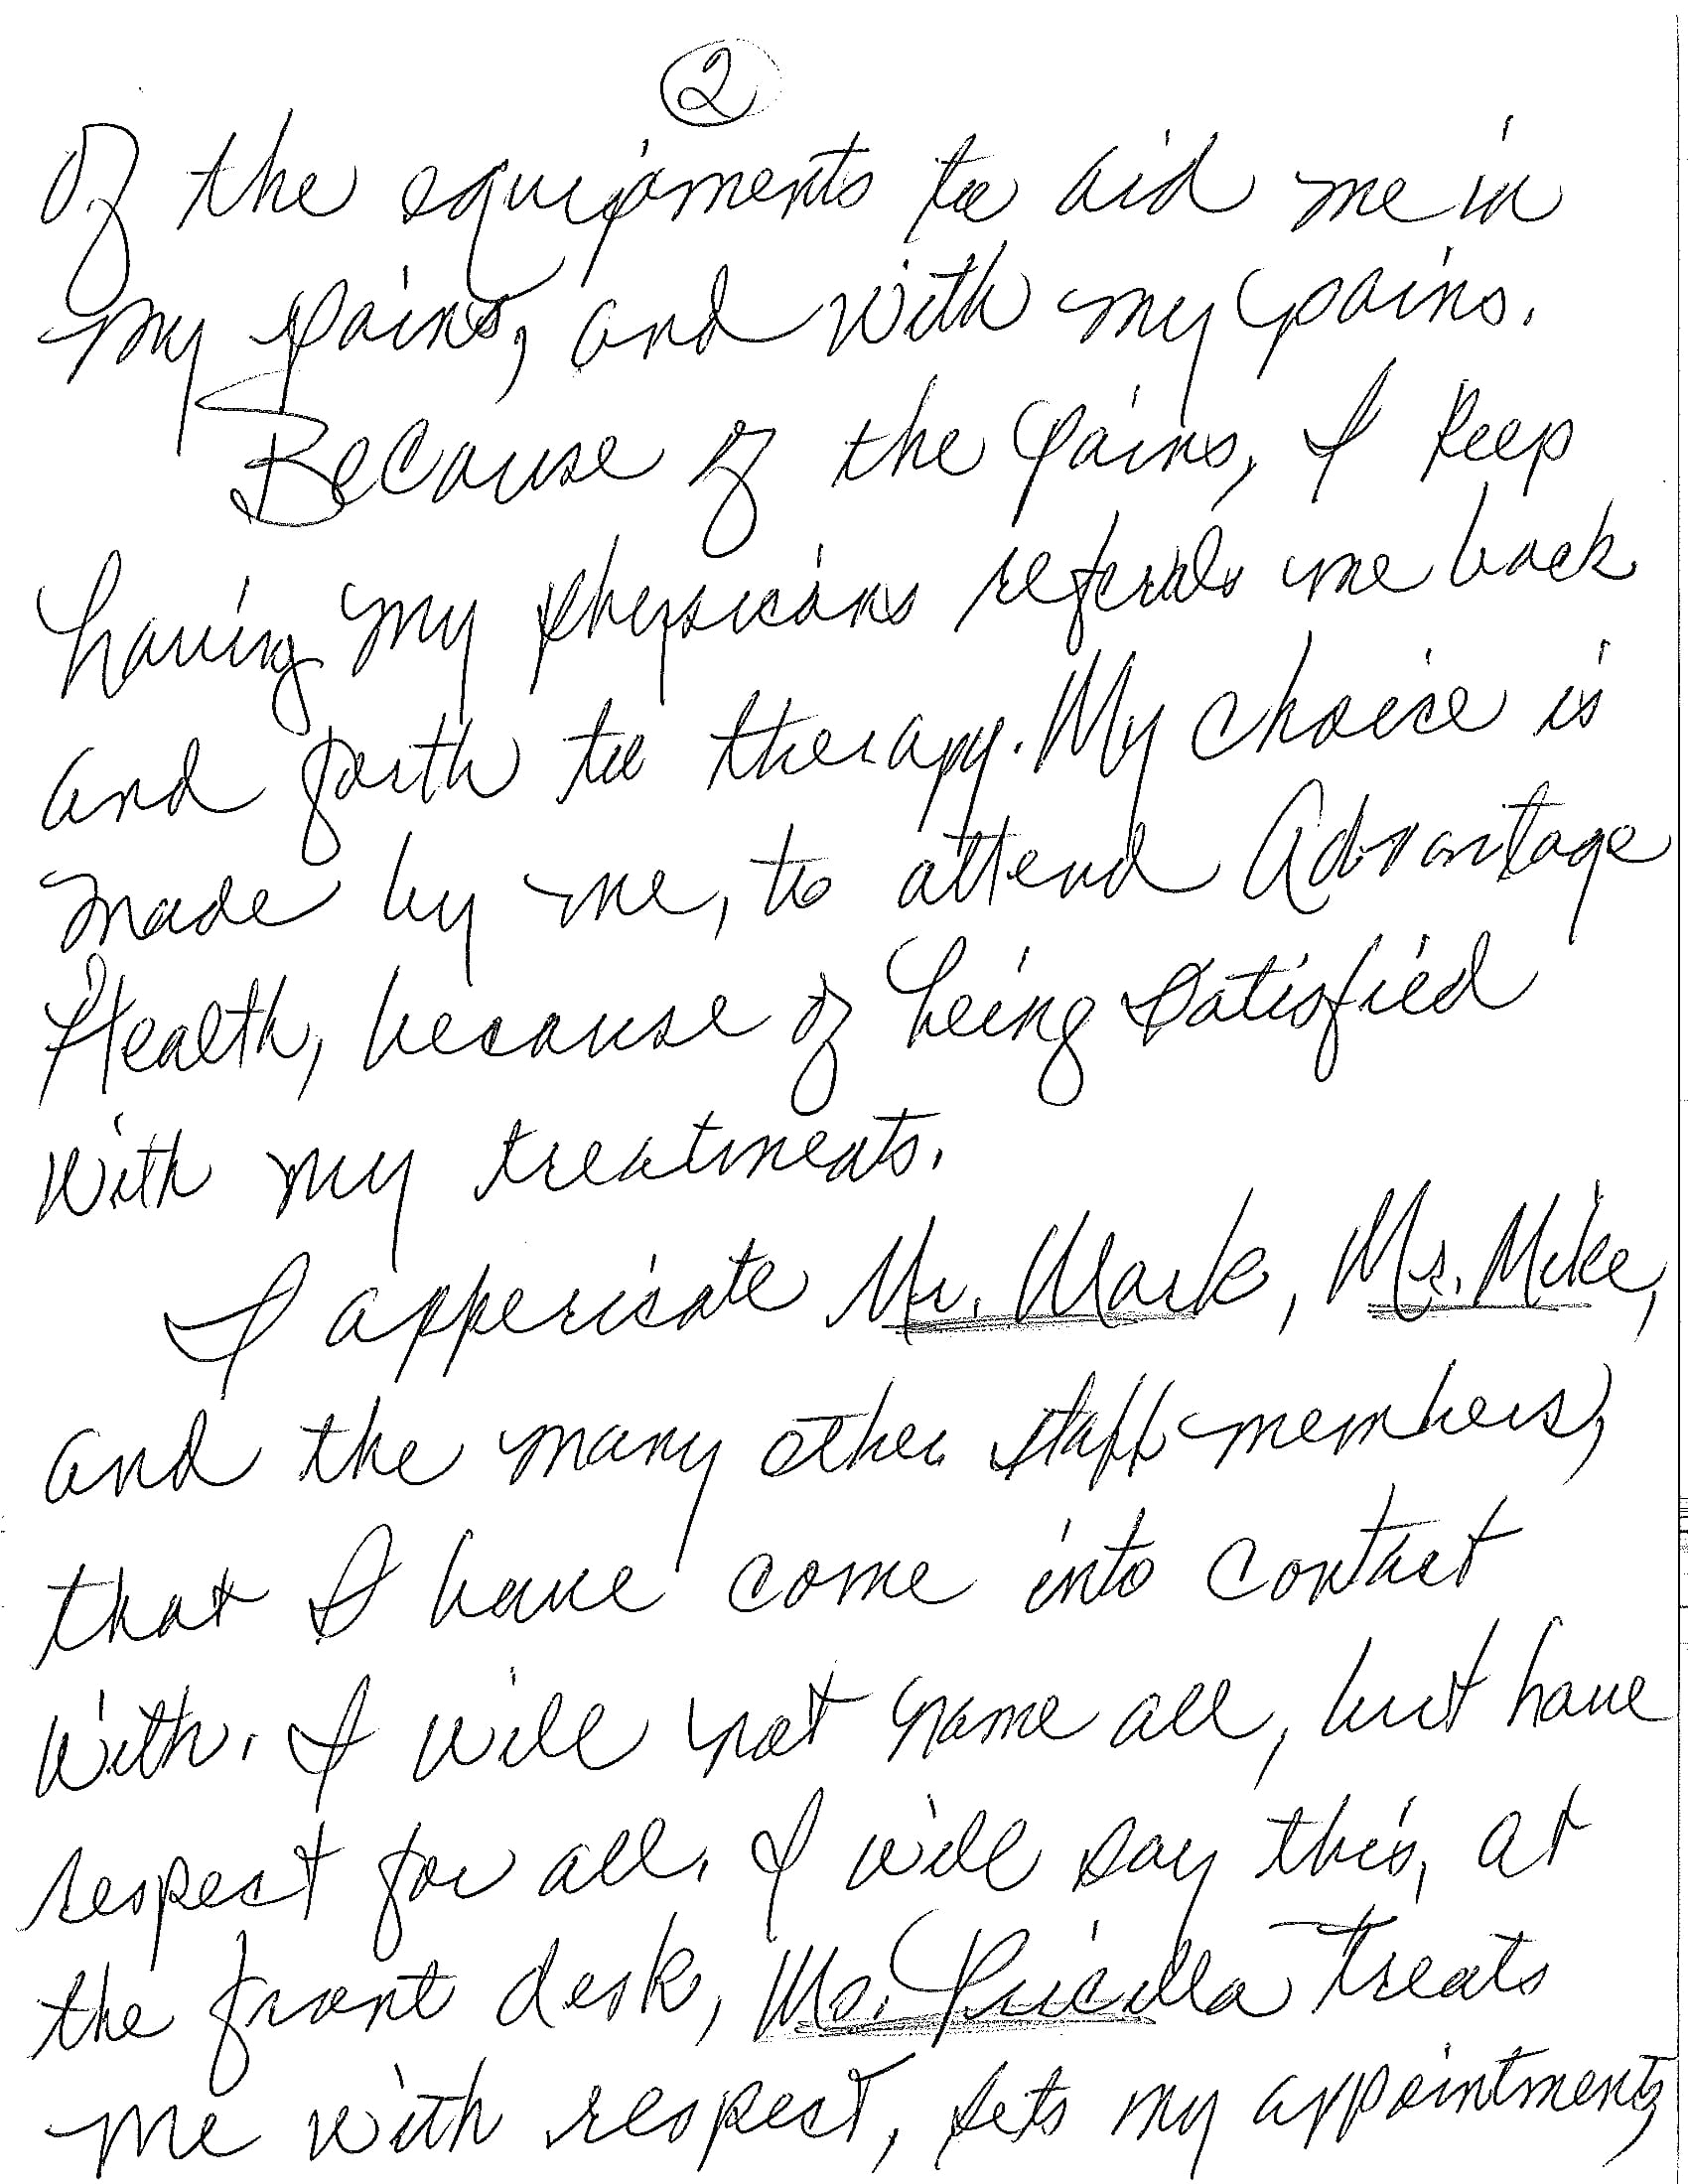 2
of the equipments to aid me in
my pains, and with my pains.
Because of the pains, I keep
having my physicians referals me back
and forth to therapy. My choice is
made by me, to attend Advantage
Health, because of being satisfied
with my treatments.
I appericate Mr. Mark, Mr. Mike,
and the many other staff members,
that I have come into contact
with. I will not name all, but have
respect for all. I will say this, at
the front desk, Ms. Pricilla treats
me with respect, sets my appointments,